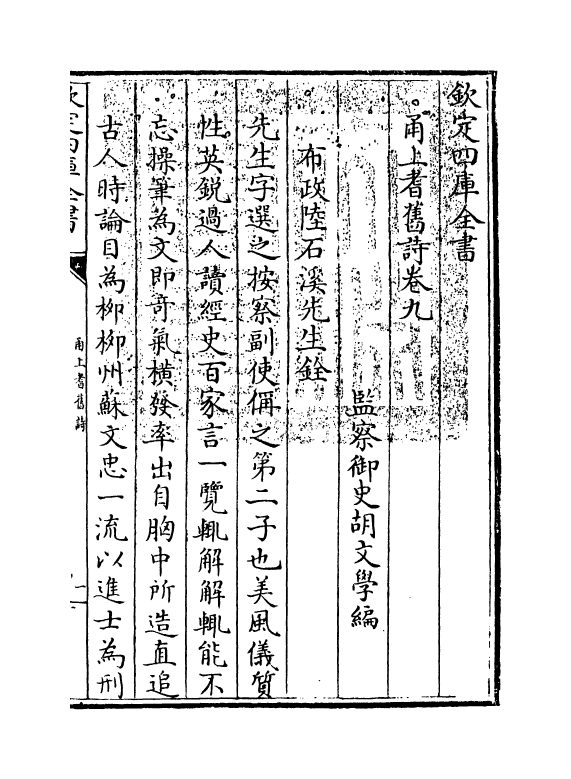 欽定四庫全書
甬上耆舊詩卷九
監察御史胡文學編
布政陸石溪先生銓
先生字選之按察副使偁之第二子也美風儀質
性英鋭過人讀經史百家言一覽輒解解輒能不
忘操筆為文即奇氣橫發率出自胸中所造直追
古人時論目為柳柳州蘇文忠一流以進士為刑
欽定四庫全書
甬上耆舊詩
一